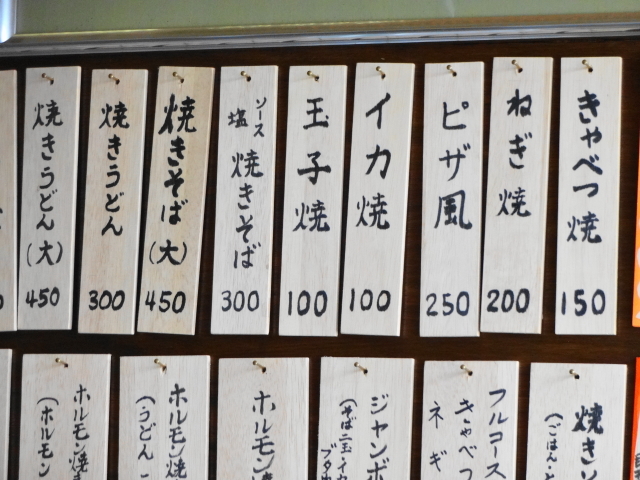 きゃべつ焼
150
ねぎ焼
200
ピザ風
250
イカ焼
100
玉子焼
100
ソース
塩
焼きそば
300
焼きそば(大)
450
焼きうどん
300
焼きうどん(大)
450
焼き
(ごはん・
フルコース
きゃべつ
ネギ
ジャンボ
(そば二玉・イカ
ブタ
ホルモン
ホルモン焼
(うどん
ホルモン焼
(ホルモン